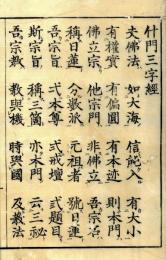 什門三字經
夫佛法 如大海 信能入 有大小
有權實 有偏圓 有本迹 則本門
佛立宗 他宗門 非佛立 吾宗名
稱日蓮 分數派 元祖者 號日蓮
吾宗旨 式本尊 式戒壇 式題目
斯宗旨 稱三箇 亦本門 云三祕
吾宗教 教與機 時與國 及教法